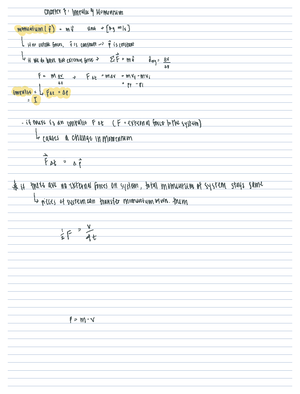 Chapter 9: Impulse & Momentum
momentum (p⃗) = mv⃗ unit → [kg m/s]
if no outside forces, v⃗ is constant → p⃗ is constant
if we do have net outside force → ΣF⃗ = ma⃗ aavg = Δv/Δt
F = m Δv/Δt → FΔt = mΔv = mvf - mvi
= pf - pi
Impulse = FΔt = Δp
= I
• if there is an impulse F Δt (F = external force to the system)
causes a change in momentum
F⃗ Δt = Δp⃗
* if there are no external forces on system, total momentum of system stays same
pieces of system can transfer momentum btwn them
½F = v/4t
p = m · v